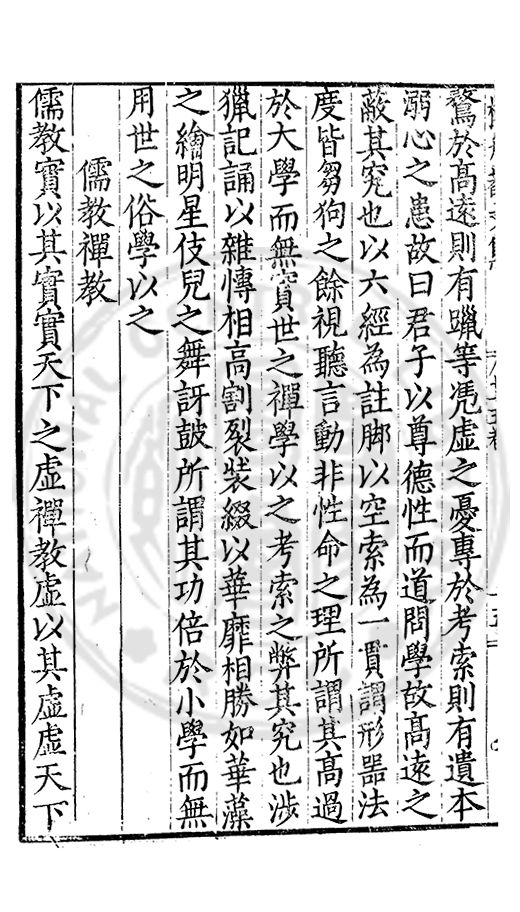 騖於高遠則有躐等凴虛之憂專於考索則有遺本
溺心之患故曰君子以尊德性而道問學故高遠之
蔽其究也以六經為註脚以空索為一貫謂形器法
度皆芻狗之餘視聽言動非性命之理所謂其高過
於大學而無實世之禪學以之考索之弊其究也涉
獵記誦以雜愽相高割裂裝綴以華靡相勝如華藻
之繪明星伎兒之舞訝鼓所謂其功倍於小學而無
用世之俗學以之
儒教禪教
儒教實以其實實天下之虛禪教虛以其虛虛天下